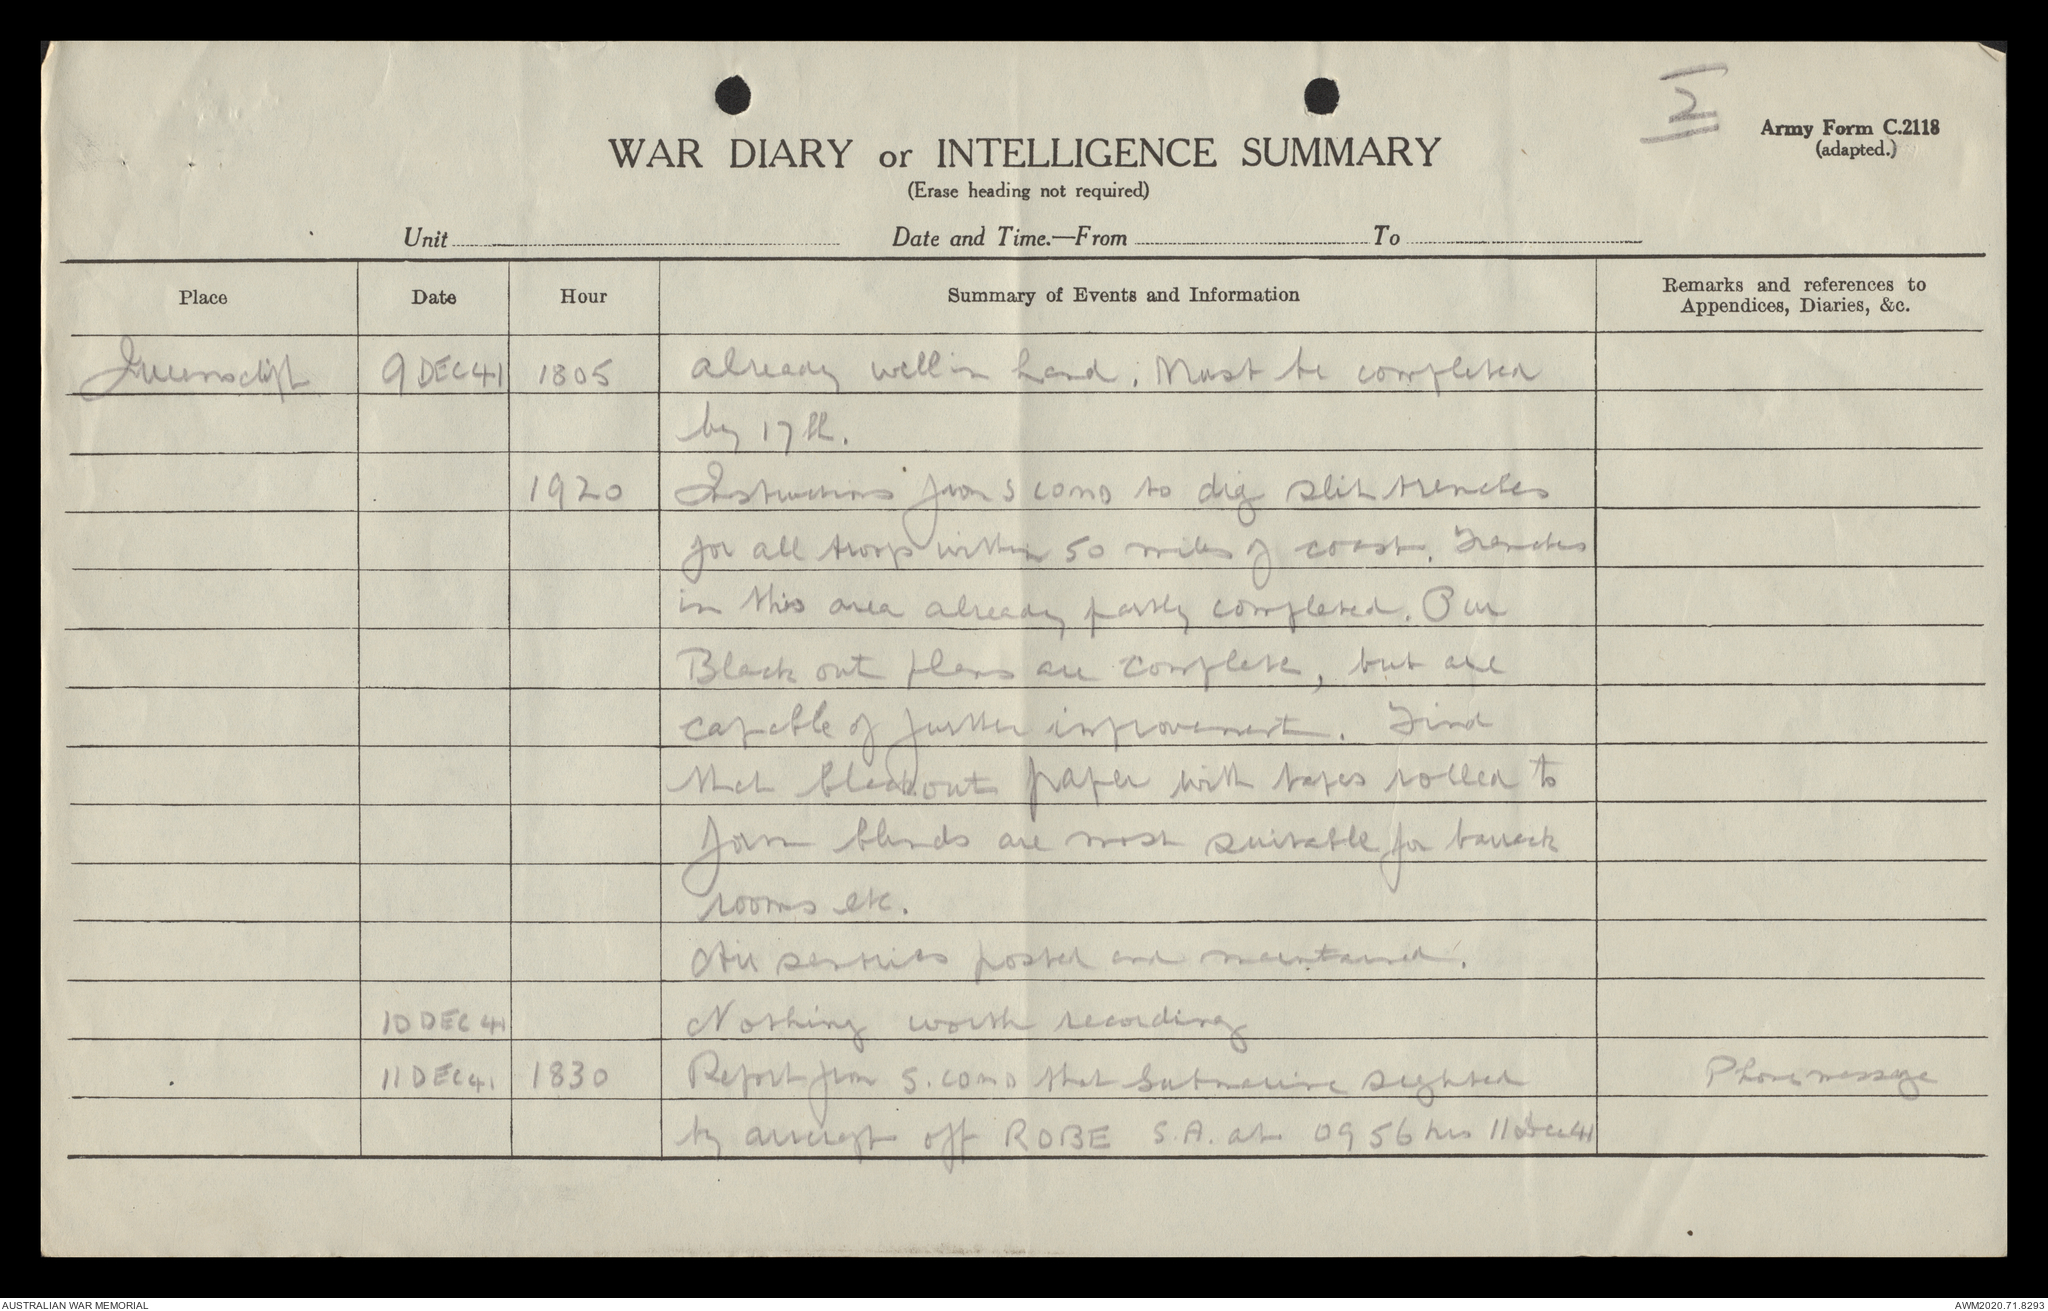 2
Army Form C.2118
(adapted.)
WAR DIARY or INTELLIGENCE SUMMARY
(Erase heading not required)
Unit Date and Time.—From To
Place Date Hour Summary of Events and Information Remarks and references to Appendices, Diaries, &c.
Queenscliff 9 DEC 41 1805 already well in hand. Must be completed
by 17th.
1920 Instructions from S COMD to dig slit trenches
for all troops within 50 miles of coast. Trenches
in this area already partly completed. Our
Black out plans are complete, but are
capable of further improvement. Find
that blackout paper with tapes rolled to
form blinds are most suitable for barrack
rooms etc.
Air sentries posted and maintained.
10 DEC 41 Nothing worth recording
11 DEC 41 1830 Report from S. COMD that submarine sighted Phone message
by aircraft off ROBE S.A. at 0956 hrs 11 Dec 41
AUSTRALIAN WAR MEMORIAL AWM2020.71.8293